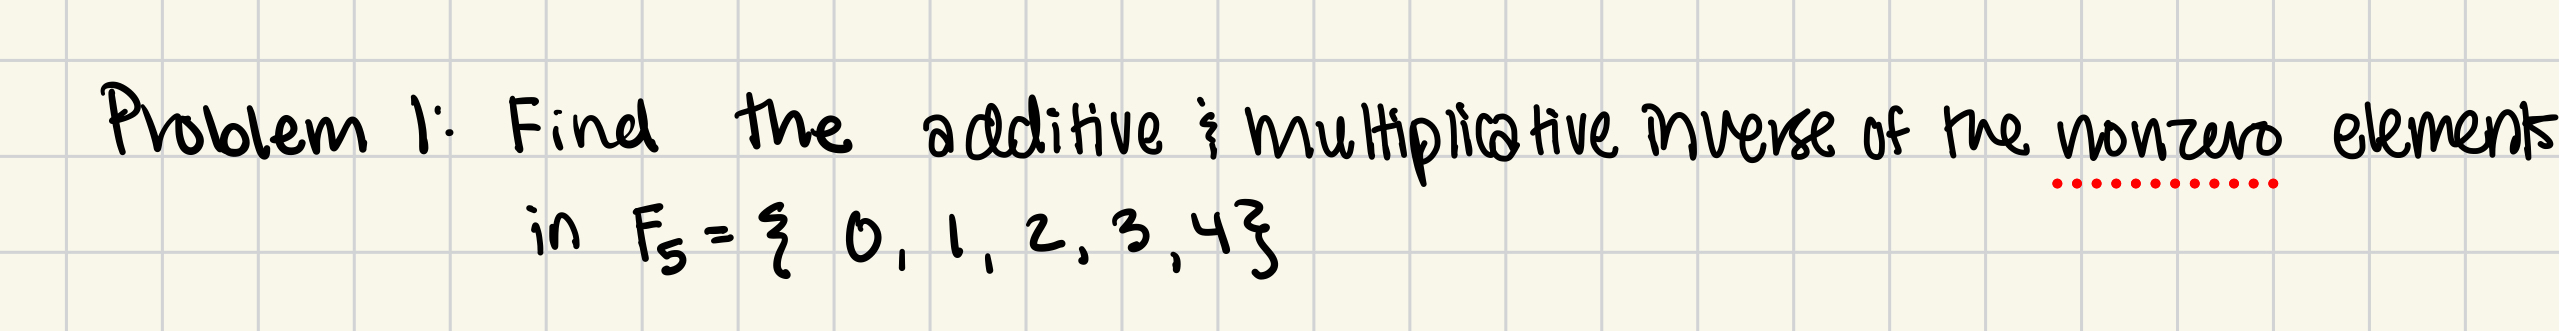 Problem 1: Find the additive & multiplicative inverse of the nonzero elements
in F₅ = { 0, 1, 2, 3, 4}